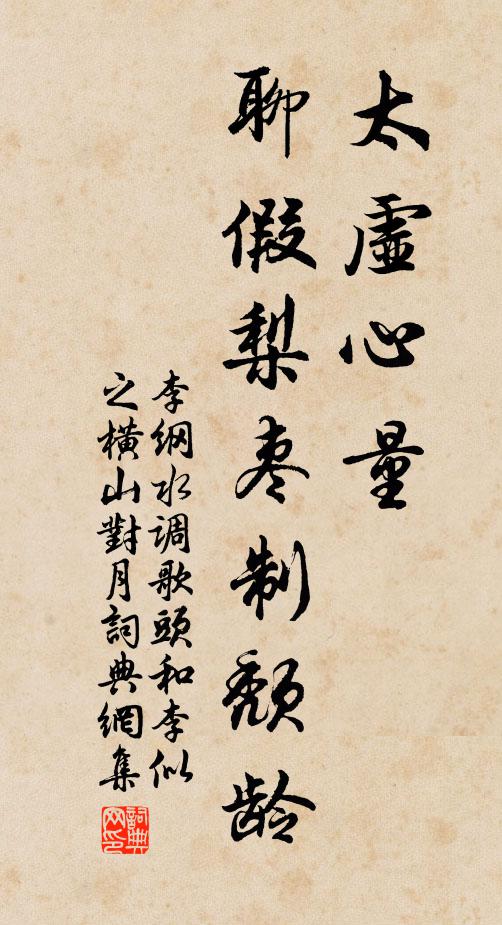 太虛心量
聊假梨枣制颓龄
李纲水调歌頭和李似
之橫山對月詞典網集
詞典
网印